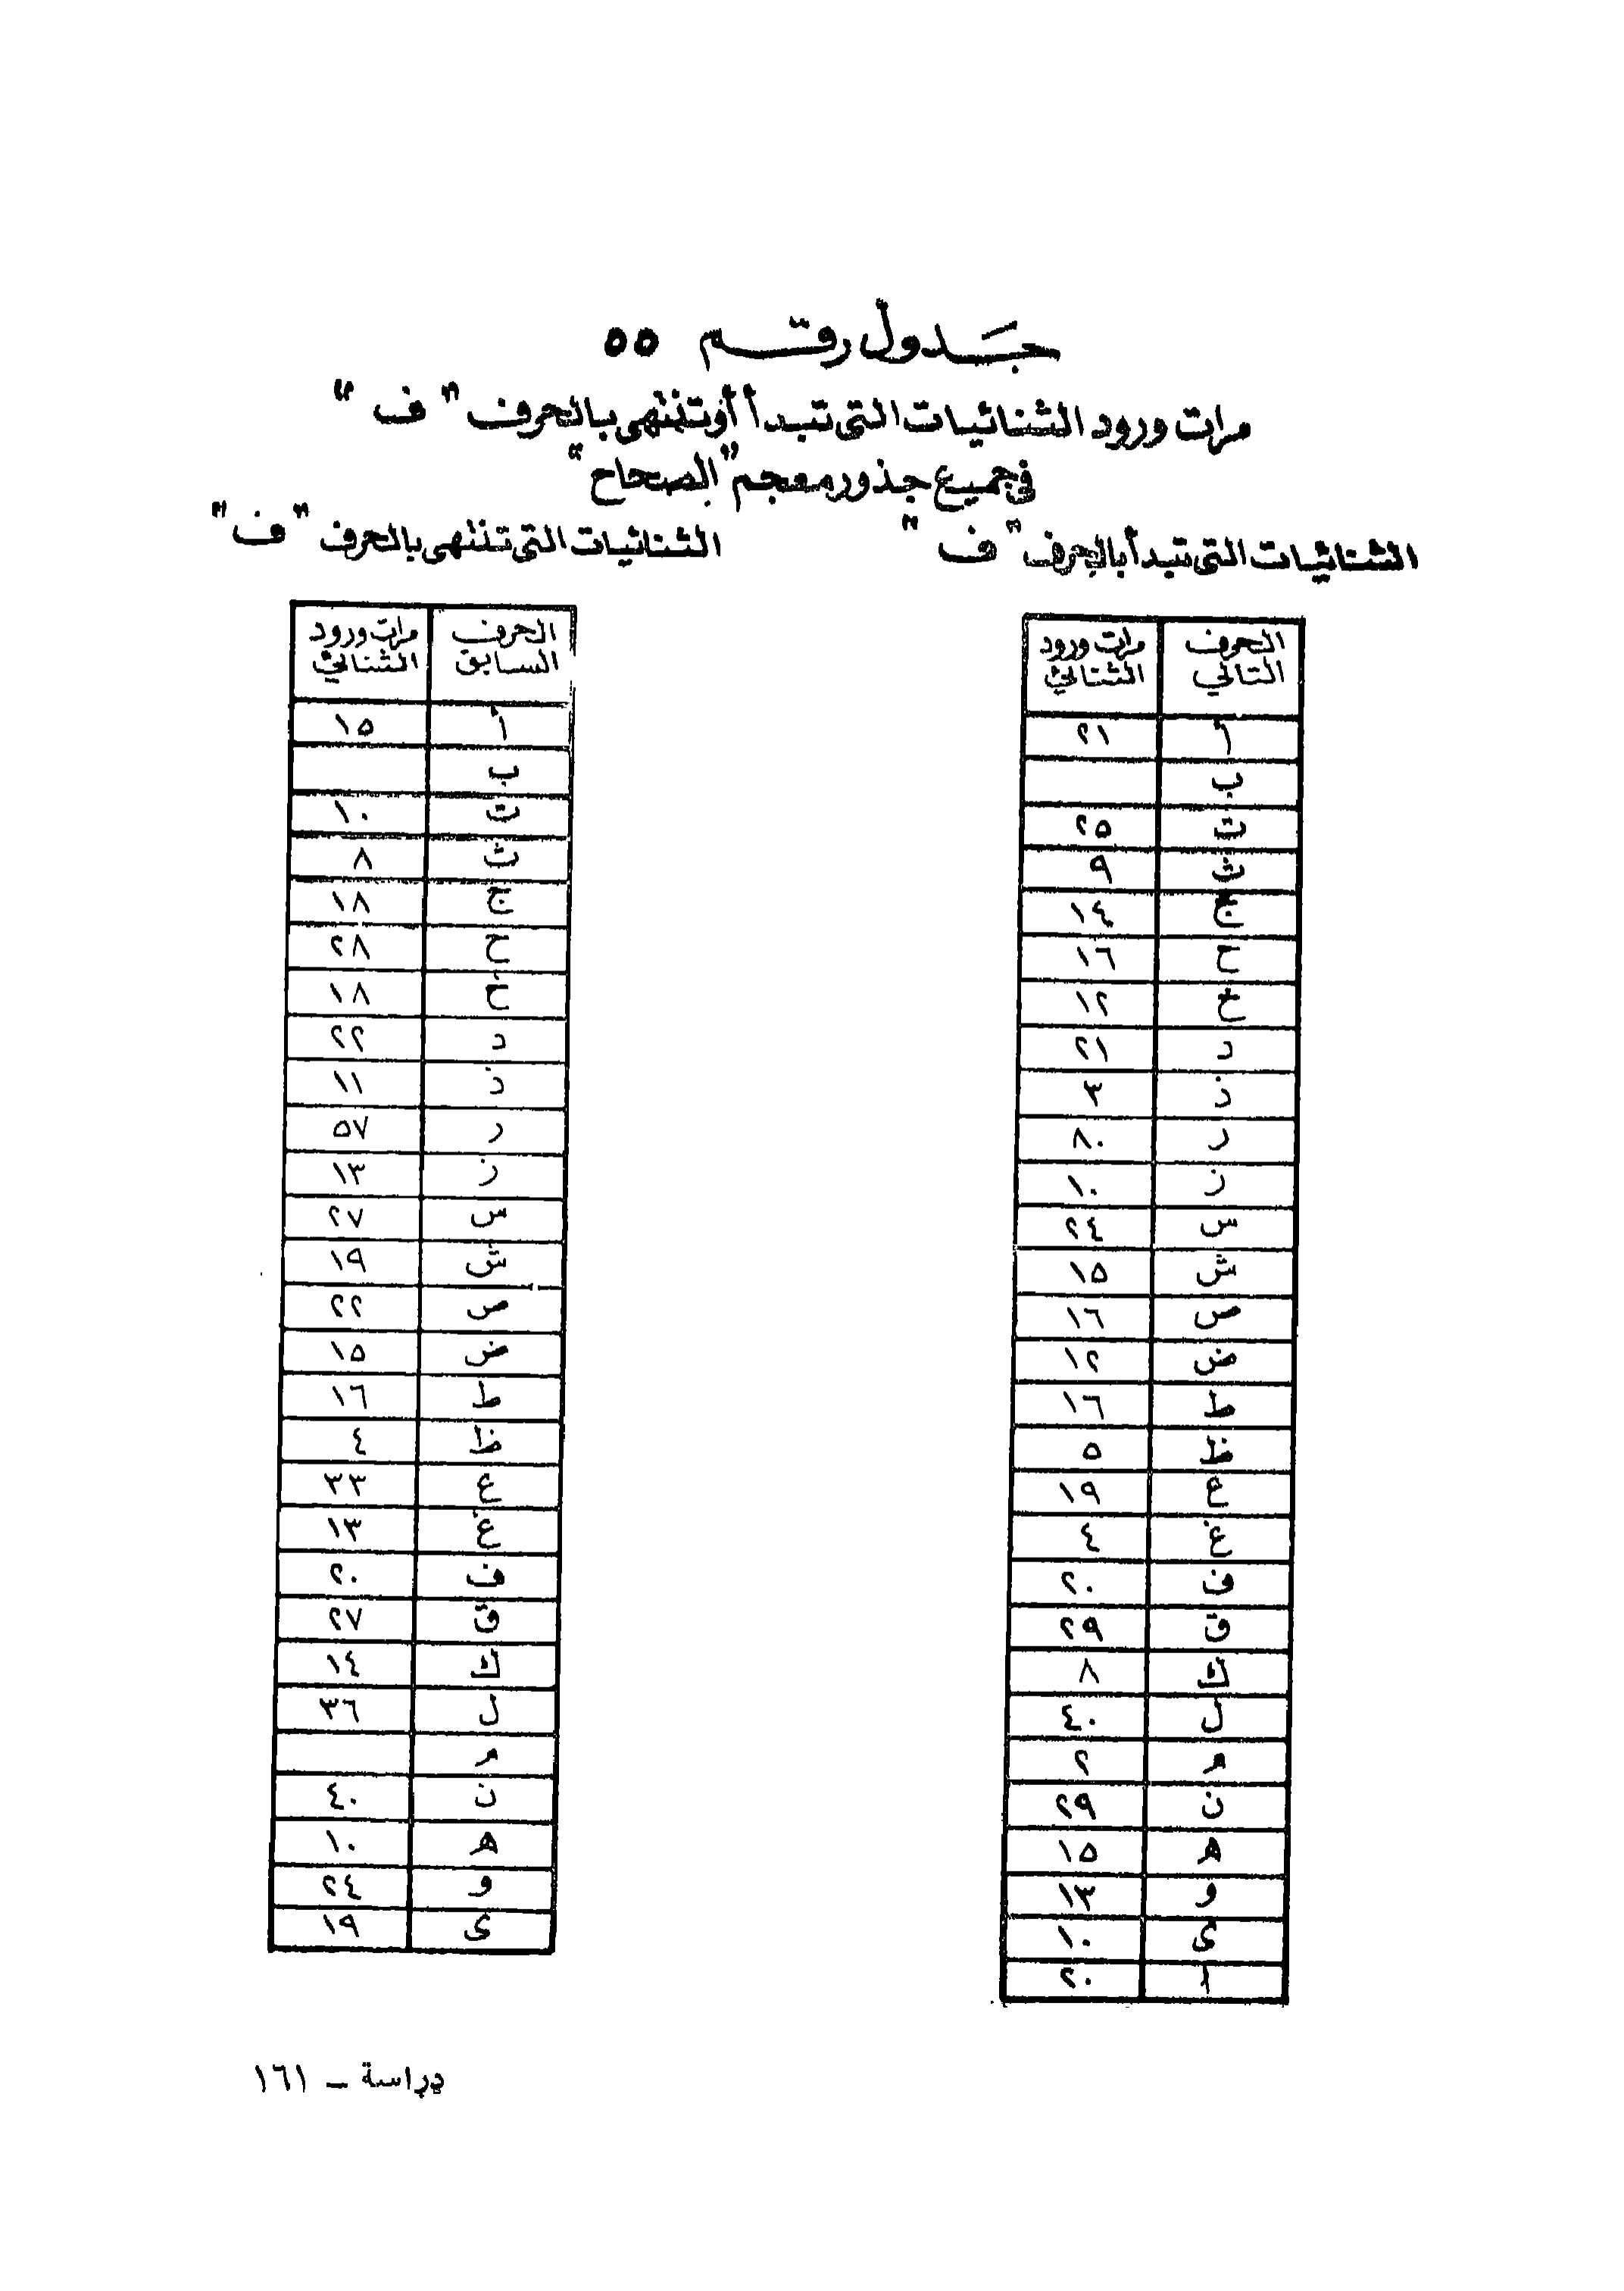 جدول رقم ٥٥
مرات ورود الثنائيات التى تبدأ أو تنتهى بالحرف " ف "
فى جميع جذور معجم "الصحاح"
الثنائيات التى تبدأ بالحرف " ف "
الحرف التالي | مرات ورود الثنائي
أ | ٢١
ب |
ت | ٢٥
ث | ٩
ج | ١٤
ح | ١٦
خ | ١٢
د | ٢١
ذ | ٣
ر | ٨٠
ز | ١٠
س | ٢٤
ش | ١٥
ص | ١٦
ض | ١٢
ط | ١٦
ظ | ٥
ع | ١٩
غ | ٤
ف | ٢٠
ق | ٢٩
ك | ٨
ل | ٤٠
م | ٢
ن | ٢٩
ه | ١٥
و | ١٣
ى | ١٠
ا | ٢٠
الثنائيات التى تنتهى بالحرف " ف "
الحرف السابق | مرات ورود الثنائي
أ | ١٥
ب |
ت | ١٠
ث | ٨
ج | ١٨
ح | ٢٨
خ | ١٨
د | ٢٢
ذ | ١١
ر | ٥٧
ز | ١٣
س | ٢٧
ش | ١٩
ص | ٢٢
ض | ١٥
ط | ١٦
ظ | ٤
ع | ٣٣
غ | ١٣
ف | ٢٠
ق | ٢٧
ك | ١٤
ل | ٣٦
م |
ن | ٤٠
ه | ١٠
و | ٢٤
ى | ١٩
دراسة ــ ١٦١